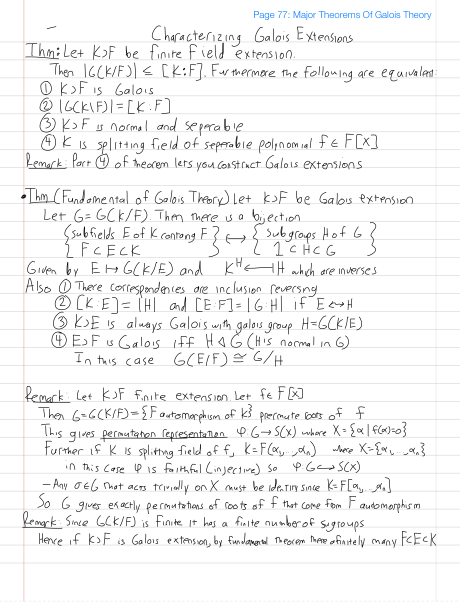 Page 77: Major Theorems Of Galois Theory
Characterizing Galois Extensions
Thm: Let K⊃F be finite field extension.
Then |G(K/F)| ≤ [K:F]. Furthermore the following are equivalent:
① K⊃F is Galois
② |G(K\F)| = [K:F]
③ K⊃F is normal and seperable
④ K is splitting field of seperable polynomial f∈F[X]
Remark: Part ④ of theorem lets you construct Galois extensions
• Thm (Fundamental of Galois Theory) Let K⊃F be Galois extension
Let G=G(K/F). Then there is a bijection
{subfields E of K containg F} ↔ {subgroups H of G}
F⊂E⊂K 1⊂H⊂G
Given by E ↦ G(K/E) and K^H ↤ H which are inverses
Also ① There correspondencies are inclusion reversing
② [K:E]=|H| and [E:F]=|G:H| if E↔H
③ K⊃E is always Galois with galois group H=G(K/E)
④ E⊃F is Galois iff H⊲G (H is normal in G)
In this case G(E/F) ≅ G/H
Remark: Let K⊃F finite extension. Let f∈F[X]
Then G=G(K/F)={F automorphism of K} permute roots of f
This gives permutation representation φ:G→S(X) where X={α|f(α)=0}
Further if K is splitting field of f, K=F(α₁,..,αₙ) where X={α₁,..,αₙ}
in this case φ is faithful (injective) so φ:G↪S(X)
- Any σ∈G that acts trivially on X must be identity since K=F[α₁,..,αₙ]
So G gives exactly permutations of roots of f that come from F automorphism
Remark: Since G(K/F) is Finite it has a finite number of sugroups
Hence if K⊃F is Galois extension, by fundamental theorem there finitely many F⊂E⊂K